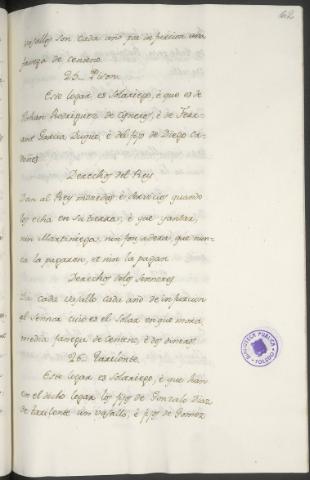 62
vasallos don cada año por infurcion una
fanega de centeno.
25. Pison.
Este logar es Solariego, è que es de
Johan Rodriguez de Cisneros, è de Ferr-
ant Garcia Duque, è del fijo de Diego Or-
doñez
Derechos del Rey
Dan al Rey monedas è servicios quando
los echa en su tierra, è que yantar,
nin Martiniega, nin fonsadera que nun-
ca la pagaron, et nin la pagan
Derechos de los Sennores
Da cada vasallo cada año de infurcion
al Sennor cuio es el Solar en que mora
media fanega de centeno, è dos dineros.
26. Taxilente.
Este logar es Solariego, è que han
en el dicho logar los fijos de Gonzalo Diaz
de un vasallo, è fijos de Gomez
BIBLIOTECA PUBLICA
TOLEDO